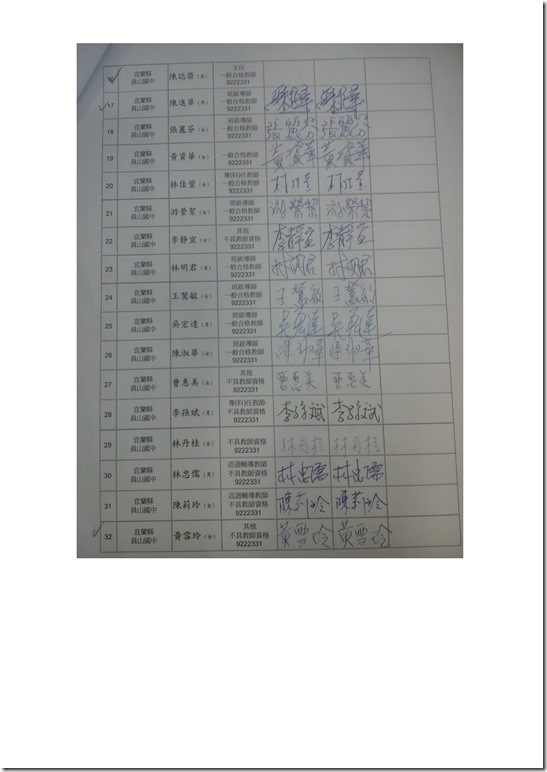 宜蘭縣 員山國中 陳誌榮(男) 主任 一般合格教師 9222331
17 宜蘭縣 員山國中 陳進華(男) 班級導師 一般合格教師 9222331 陳進華 陳進華
18 宜蘭縣 員山國中 張麗芬(女) 班級導師 一般合格教師 9222331 張麗芬 張麗芬
19 宜蘭縣 員山國中 黃資華(女) 一般合格教師 9222331 黃資華 黃資華
20 宜蘭縣 員山國中 林佳萱(女) 專(科)任教師 一般合格教師 9222331 林佳萱 林佳萱
21 宜蘭縣 員山國中 游縈絜(女) 班級導師 一般合格教師 9222331 游縈絜 游縈絜
22 宜蘭縣 員山國中 李靜宜(女) 其他 不具教師資格 9222331 李靜宜 李靜宜
23 宜蘭縣 員山國中 林明君(男) 班級導師 一般合格教師 9222331 林明君 林明君
24 宜蘭縣 員山國中 王鶖敏(女) 班級導師 一般合格教師 9222331 王鶖敏 王鶖敏
25 宜蘭縣 員山國中 吳宏達(男) 班級導師 一般合格教師 9222331 吳宏達 吳宏達
26 宜蘭縣 員山國中 陳淑華(女) 班級導師 一般合格教師 9222331 陳淑華 陳淑華
27 宜蘭縣 員山國中 曹惠美(女) 其他 不具教師資格 9222331 曹惠美 曹惠美
28 宜蘭縣 員山國中 李孫斌(男) 專(科)任教師 不具教師資格 9222331 李孫斌 李孫斌
29 宜蘭縣 員山國中 林丹桂(女) 不具教師資格 9222331 林丹桂 林丹桂
30 宜蘭縣 員山國中 林忠儒(男) 巡迴輔導教師 不具教師資格 9222331 林忠儒 林忠儒
31 宜蘭縣 員山國中 陳莉玲(女) 巡迴輔導教師 不具教師資格 9222331 陳莉玲 陳莉玲
32 宜蘭縣 員山國中 黃雪玲(女) 其他 不具教師資格 9222331 黃雪玲 黃雪玲